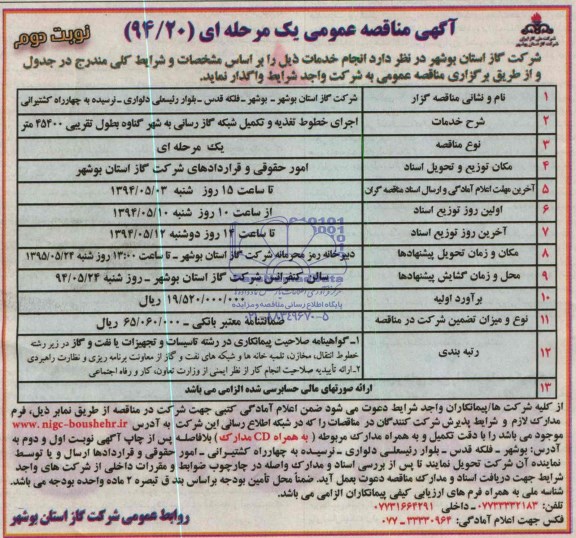 آگهی مناقصه عمومی یک مرحله ای (۹۴/۲۰)
نوبت دوم
شرکت ملی گاز ایران
شرکت گاز استان بوشهر
شرکت گاز استان بوشهر در نظر دارد انجام خدمات ذیل را بر اساس مشخصات و شرایط کلی مندرج در جدول
و از طریق برگزاری مناقصه عمومی به شرکت واجد شرایط واگذار نماید.
۱ نام و نشانی مناقصه گزار شرکت گاز استان بوشهر ـ بوشهر ـ فلکه قدس ـ بلوار رئیسعلی دلواری ـ نرسیده به چهارراه کشتیرانی
۲ شرح خدمات اجرای خطوط تغذیه و تکمیل شبکه گاز رسانی به شهر گناوه بطول تقریبی ۴۵۴۰۰ متر
۳ نوع مناقصه یک مرحله ای
۴ مکان توزیع و تحویل اسناد امور حقوقی و قراردادهای شرکت گاز استان بوشهر
۵ آخرین مهلت اعلام آمادگی و ارسال اسناد مناقصه گران تا ساعت ۱۵ روز شنبه ۱۳۹۴/۰۵/۰۳
۶ اولین روز توزیع اسناد از ساعت ۱۰ روز شنبه ۱۳۹۴/۰۵/۱۰
۷ آخرین روز توزیع اسناد تا ساعت ۱۴ روز دوشنبه ۱۳۹۴/۰۵/۱۲
۸ مکان و زمان تحویل پیشنهادها دبیرخانه رمز محرمانه شرکت گاز استان بوشهر ـ تا ساعت ۱۳:۰۰ روز شنبه ۱۳۹۵/۰۵/۲۴
۹ محل و زمان گشایش پیشنهادها سالن کنفرانس شرکت گاز استان بوشهر ـ روز شنبه ۹۴/۰۵/۲۴
۱۰ برآورد اولیه ۱۹/۵۲۰/۰۰۰/۰۰۰ ریال
۱۱ نوع و میزان تضمین شرکت در مناقصه ضمانتنامه معتبر بانکی ـ ۶۵/۰۶۰/۰۰۰ ریال
۱۲ رتبه بندی ۱ـ گواهینامه صلاحیت پیمانکاری در رشته تاسیسات و تجهیزات یا نفت و گاز در زیر رشته
خطوط انتقال، مخازن، تلمبه خانه ها و شبکه های نفت و گاز از معاونت برنامه ریزی و نظارت راهبردی
۲ـ ارائه تأییدیه صلاحیت انجام کار از نظر ایمنی از وزارت تعاون، کار و رفاه اجتماعی
۱۳ ارائه صورتهای مالی حسابرسی شده الزامی می باشد
از کلیه شرکت ها/پیمانکاران واجد شرایط دعوت می شود ضمن اعلام آمادگی کتبی جهت شرکت در مناقصه از طریق نمابر ذیل، فرم
مدارک لازم و شرایط پذیرش شرکت کنندگان در مناقصات را که در شبکه اطلاع رسانی این شرکت به آدرس www.nigc-boushehr.ir
موجود می باشد را با دقت تکمیل و به همراه مدارک مربوطه ( به همراه CD مدارک ) بلافاصله پس از چاپ آگهی نوبت اول و دوم به
آدرس: بوشهر ـ فلکه قدس ـ بلوار رئیسعلی دلواری ـ نرسیده به چهارراه کشتیرانی ـ امور حقوقی و قراردادها ارسال و یا توسط
نماینده آن شرکت تحویل نمایند تا پس از بررسی اسناد و مدارک واصله در چارچوب ضوابط و مقررات داخلی از شرکت های واجد
شرایط جهت دریافت اسناد و مدارک مناقصه دعوت بعمل آید. ضمناً محل تأمین بودجه براساس بند ق تبصره ۲ ماده واحده بودجه می باشد.
شناسه ملی به همراه فرم های ارزیابی کیفی پیمانکاران الزامی می باشد.
تلفن: ۰۷۷۳۳۳۳۲۱۸۳ ـ داخلی ۰۷۷۳۱۶۶۴۲۹۱
فکس جهت اعلام آمادگی: ۳۳۳۳۰۹۶۴ ـ ۰۷۷
روابط عمومی شرکت گاز استان بوشهر
پایگاه اطلاع رسانی مناقصه و مزایده
۰۲۱-۸۸۳۴۹۶۷۰-۵